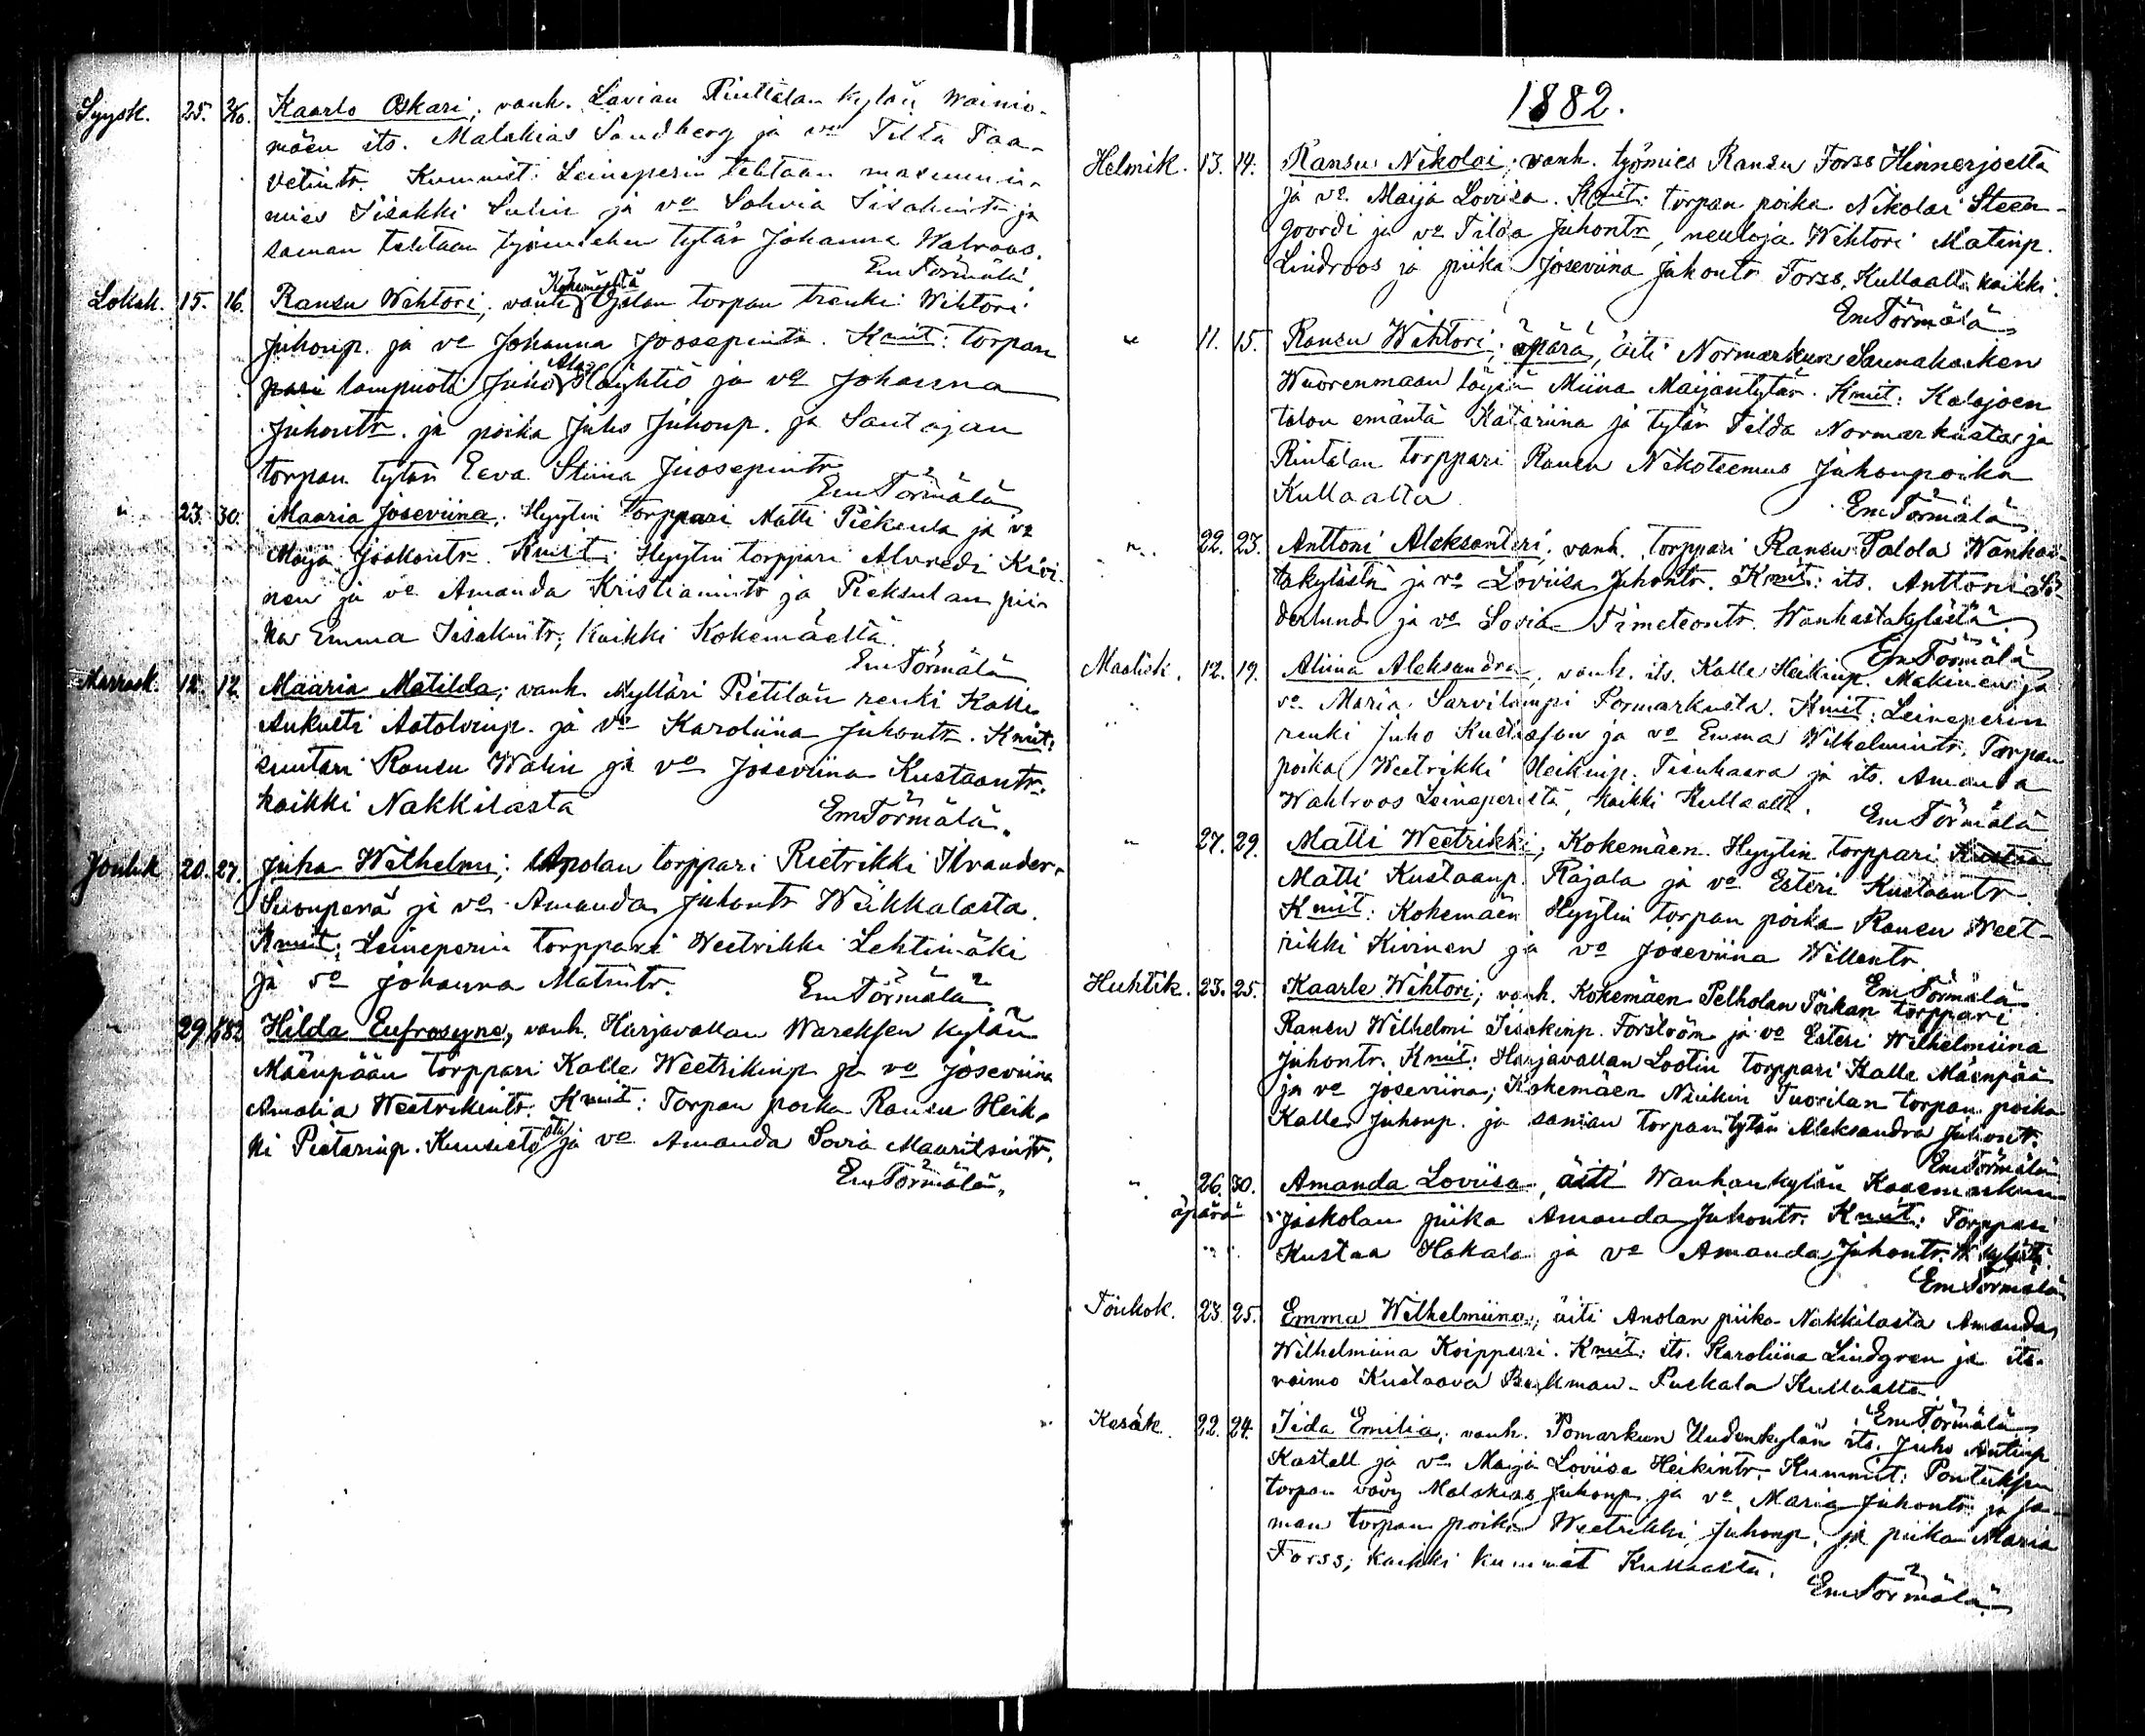 Syysk. 25. 26. Kaarlo Oskari; vanh. Lavian Riuttalan kylän Wainio-
mäen its. Malakias Sandberg ja vo Tilta Taa-
vetintr. Kummit: Leineperin tehtaan masuuni-
mies Iisakki Sulin ja vo Sohvia Iisakintr ja
saman tehtaan työmiehen tytär Johanna Walroos.
Em Törmälä.
Lokak. 15. 16. Ransu Wihtori; vanh. Kokemäeltä Ojalan torpan renki Wihtori
Juhonp. ja vo Johanna Joosepintr. Kmit: torpan
pari lampuoti Juho Ala Söyhtiö ja vo Johanna
Juhontr. ja poika Juho Juhonp. ja Santajan
torpan tytär Eeva Stiina Juosepintr
Em Törmälä
" 23. 30. Maaria Joseviina; Hyytin torppari Matti Pieksula ja vo
Maija Jaakontr. Kmit: Hyytin torppari Alvredi Kivi-
nen ja vo Amanda Kristianintr ja Pieksulan pii-
ka Emma Iisakintr; Kaikki Kokemäeltä.
Em Törmälä
Marrask. 12. 12. Maaria Matilda; vanh. Mylläri Pietilän renki Kalle
Aukusti Aatolvinp. ja vo Karoliina Juhontr. Kmit:
suutari Ransu Walin ja vo Joseviina Kustaantr.
kaikki Nakkilasta
Em Törmälä.
Jouluk 20. 27. Juha Wilhelmi; Anolan torppari Rietrikki Ilvander-
Suonperä ja vo Amanda Juhontr Wiikkalasta.
Kmit: Leineperin torppari Weetrikki Lehtimäki
ja vo Johanna Matintr.
Em Törmälä
" 29 1/1 82 Hilda Eufrosyne, vanh. Harjavallan Wareksen kylän
Mäenpään torppari Kalle Weetrikinp ja vo Joseviina
Amalia Weetrikintr. Kmit: Torpan poika Ransu Heik-
ki Pietarinp. Kuusisto ja vo Amanda Sovia Mauritsintr.
Em Törmälä.
1882.
Helmik. 13. 14. Ransu Nikolai; vanh. työmies Ransu Forss Hinnerjoelta
ja vo Maija Loviisa. Kmit: torpan poika Nikolai Steen-
goordi ja vo Tilda Juhontr, neuloja Wihtori Matinp.
Lindroos ja piika Joseviina Juhontr Forss, Kullaalta kaikki.
Em Törmälä
" 11. 15. Ransu Wihtori; äpärä, äiti Normarkun Saunakosken
Wuorenmaan löysä Miina Maijantytär. Kmit: Kalajoen
talon emäntä Katariina ja tytär Tilda Normarkusta ja
Rintalan torppari Ransu Nikoteemus Juhonpoika
Kullaalta
Em Törmälä
" 22. 23. Anttoni Aleksanteri; vanh. torppari Ransu Palola Wanhas-
takylästä ja vo Loviisa Juhontr. Kmit: its. Anttoni Sö-
derlund ja vo Sovia Timeteontr. Wanhastakylästä.
Em Törmälä
Maalisk. 12. 19. Aliina Aleksandra, vanh. its. Kalle Heikinp. Mäkinen ja
vo Maria Sarvilampi Pormarkusta. Kmit: Leineperin
renki Juho Kustafson ja vo Emma Wilhelmiintr, Torpan
poika Weetrikki Heikinp. Tienhaara ja its. Amanda
Wahlroos Leineperistä, Kaikki Kullaalta.
Em Törmälä
" 27. 29. Matti Weetrikki; Kokemäen Hyytin torppari Kustaa
Matti Kustaanp. Rajala ja vo Esteri Kustaantr.
Kmit: Kokemäen Hyytin torpan poika Ransu Weet-
rikki Kivinen ja vo Joseviina Willentr.
Em Törmälä
Huhtik. 23. 25. Kaarle Wihtori; vanh. Kokemäen Pelholan Töikan torppari
Ransu Wilhelmi Iisakinp. Forsström ja vo Esteri Wilhelmiina
Juhontr. Kmit: Harjavallan Lootin torppari Kalle Mäenpää
ja vo Joseviina; Kokemäen Niukin Tuorilan torpan poika
Kalle Juhonp. ja saman torpan tytär Aleksandra Juhontr.
Em Törmälä
" 26. 30. Amanda Loviisa, äiti Wanhankylän Kaasmarkun
äpärä Jaskolan piika Amanda Juhontr. Kmit: Torppari
Kustaa Hakala ja vo Amanda Juhontr. W. kylästä.
Em Törmälä
Toukok. 23. 25. Emma Wilhelmiina; äiti Anolan piika Nakkilasta Amanda
Wilhelmiina Koippuri. Kmit: its. Karoliina Lindgren ja its.
vaimo Kustaava Backman-Puckala Kullaalta.
Em Törmälä
Kesäk. 22. 24. Iida Emilia; vanh. Pomarkun Uudenkylän its. Juho Antinp
Kastell ja vo Maija Loviisa Heikintr. Kummit: Pontuksen
torpan vävy Malakias Juhonp. ja vo Maria Juhontr ja sa-
man torpan poika Weetrikki Juhonp. ja piika Maria
Forss; kaikki kummit Kullaalta.
Em Törmälä